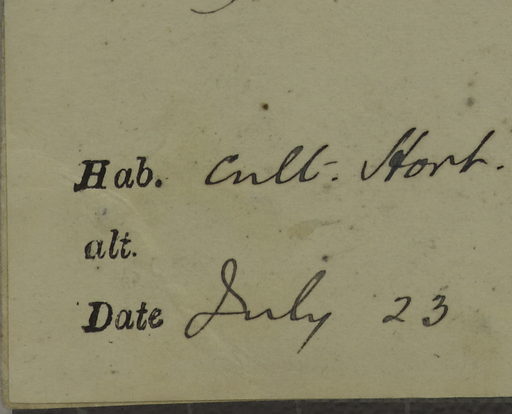 Hab. Cult. Hort.
alt.
Date July 23